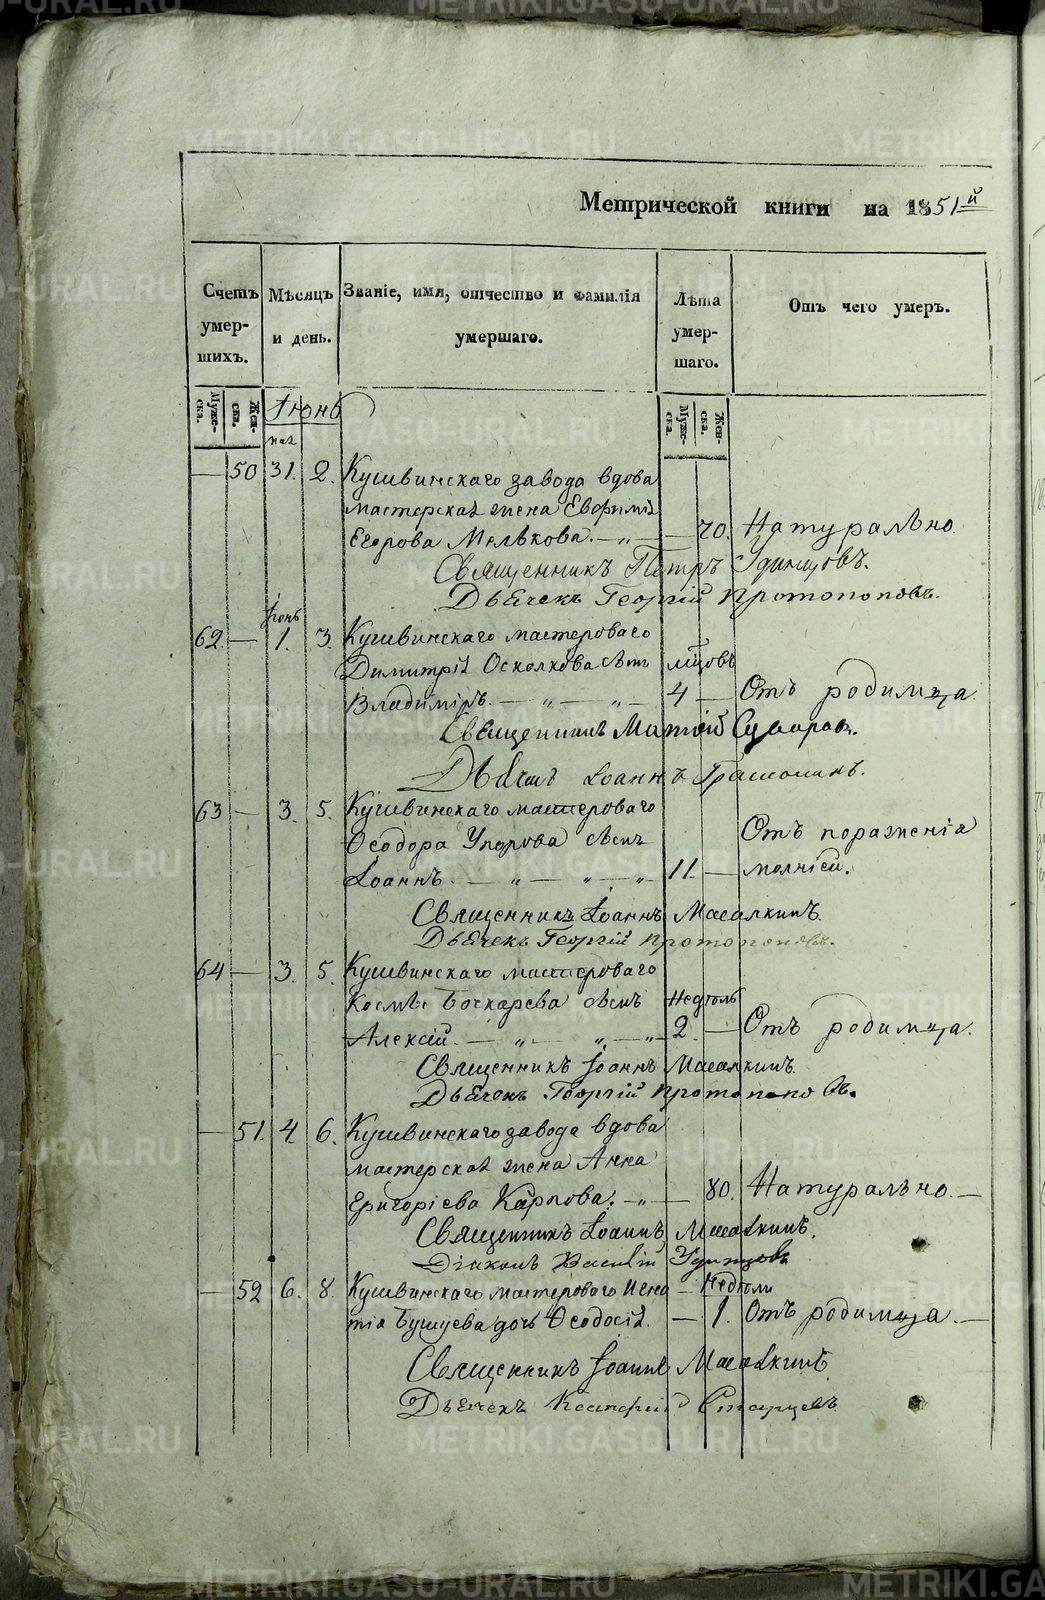 Метрической книги на 1851й
Счетъ умер-шихъ.
Мѣсяцъ и день.
Званіе, имя, отчество и фамилія умершаго.
Лѣта умер-шаго.
Отъ чего умеръ.
Муже-ска.
Жен-ска.
Іюнь
Муже-ска.
Жен-ска.
маі
— 50 31. 2. Кушвинскаго завода вдова
мастерская жена Евфимія
Егорова Мелькова. — „ — — 70. Натурально
Священникъ Петръ Удинцовъ.
Дьячекъ Георгій Протопоповъ.
Іюнь
62 — 1. 3. Кушвинскаго мастероваго
Димитрія Осколкова сынъ мцовъ
Владиміръ. — „ — „ — 4 — Отъ родимца
Священникъ Матѳій
Дьячекъ Іоаннъ
63 — 3. 5. Кушвинскаго мастероваго
Ѳеодора Упорова сынъ Отъ пораженія
Іоаннъ. — „ — „ — „ 11. — молніей.
Священникъ Іоаннъ Масалкинъ.
Дьячекъ Георгій Протопоповъ.
64 — 3. 5. Кушвинскаго мастероваго
Космы Бочкарева сынъ Недѣль
Алексій. — „ — „ — „ 2. — Отъ родимца.
Священникъ Іоаннъ Масалкинъ.
Дьячекъ Георгій Протопоповъ.
— 51. 4. 6. Кушвинскаго завода вдова
мастерская жена Анна
Григоріева Карпова. — „ — 80. Натурально. —
Священникъ Іоаннъ Масалкинъ.
Діаконъ Василій Удинцовъ
— 52 6. 8. Кушвинскаго мастероваго Игна — Недѣли
тія Бушуева дочь Ѳеодосія. — 1. Отъ родимца. —
Священникъ Іоаннъ Масалкинъ
Дьячекъ Старцевъ
METRIKI.GASO-URAL.RU